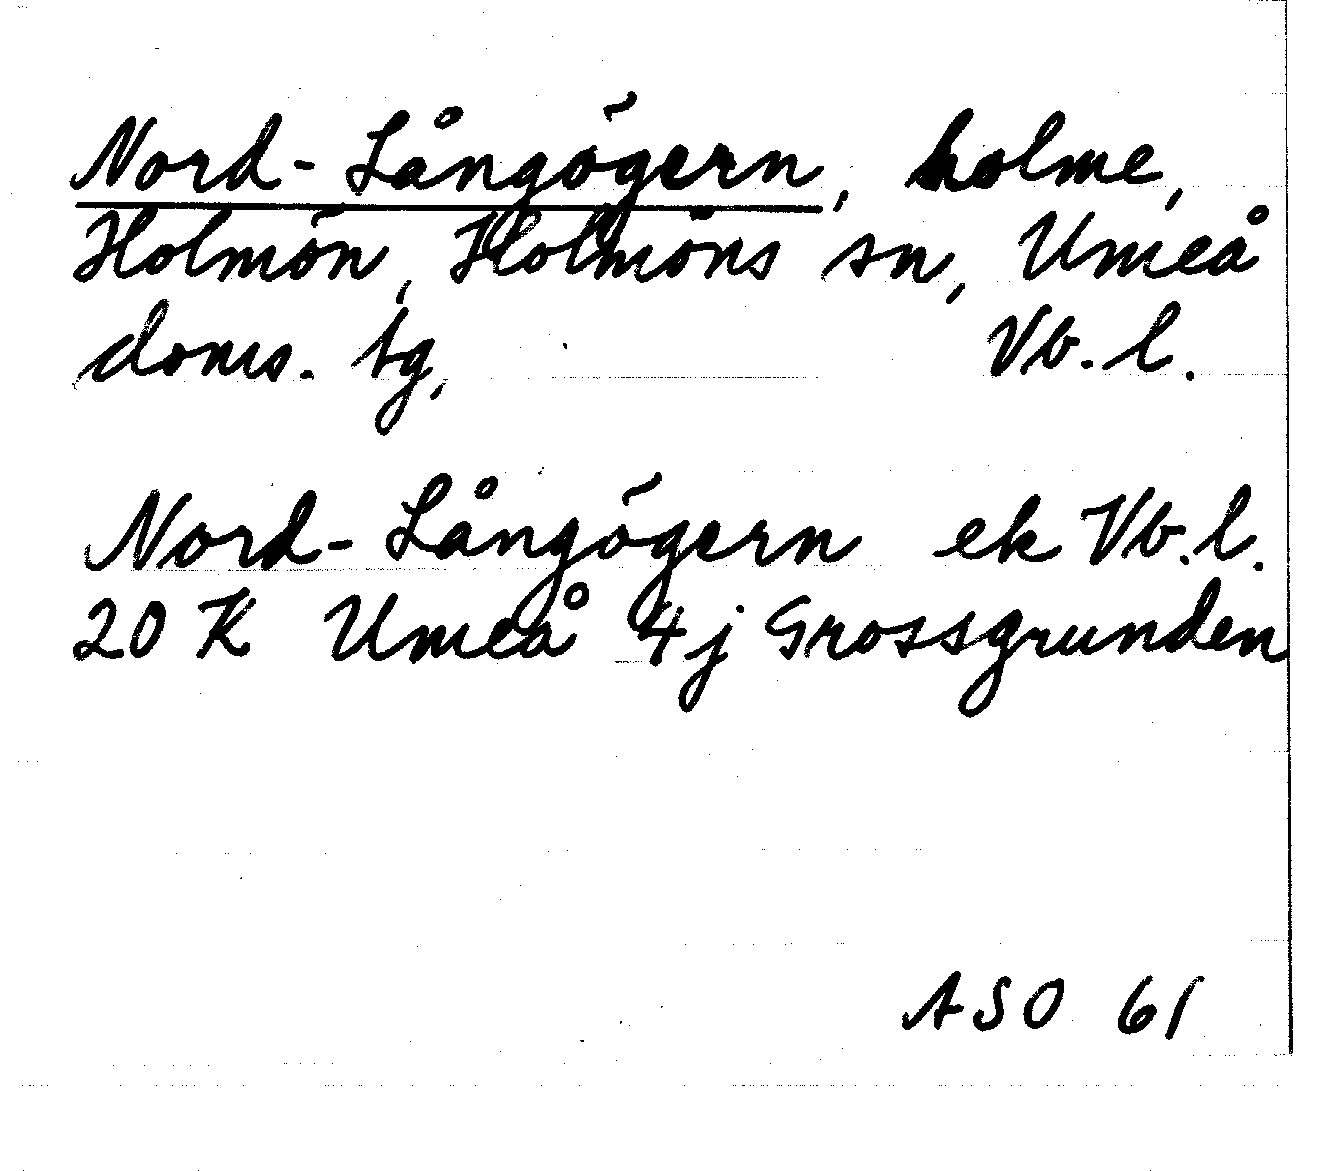 Nord-Långögern, holme,
Holmön, Holmöns sn, Umeå
doms. tg, Vb. l.
Nord-Långögern ek Vb. l.
20 K Umeå 4j Grossgrunden
ASO 61